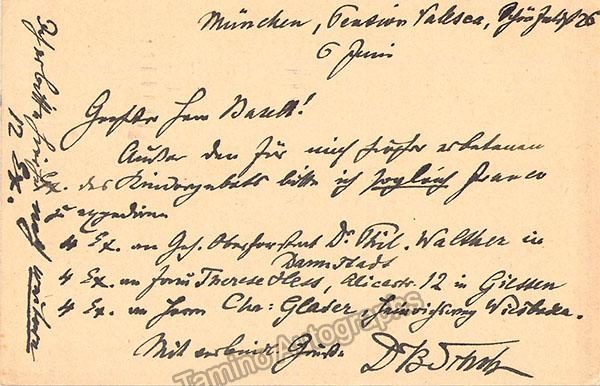 München, Pension Valesca, Schönfeldst 26
6 Juni
Geehrter Herr Barett!
Außer den für mich früher erbetenen
Ex. des Kindergebets bitte ich sogleich franco
zu expediren
4 Ex. an Geh. Oberforstrat Dr. Phil. Walther in
Darmstadt
4 Ex. an Frau Therese Hess, Alicestr. 12 in Giessen
4 Ex. an Herrn Cha: Glaser, Heinrichsweg Wiesbaden.
Mit Grüße
Dr B Scholz
12 Ex.
Tamino Autographs